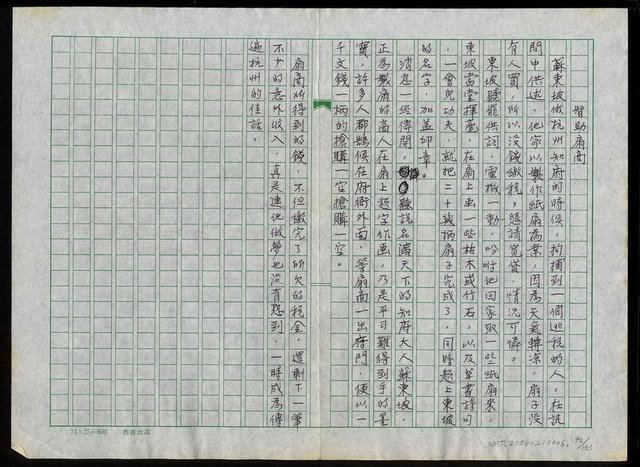 智助扇商
蘇東坡做杭州知府的時候，拘捕到一個逃稅的人，在訊
問中供述，他家以製作紙扇為業，因為天氣轉涼，扇子沒
有人買，所以沒錢繳稅，懇請寬貸，情況可憐。
東坡聽罷供詞，靈機一動，吩咐他回家取一些紙扇來，
東坡當堂揮毫，在扇上畫一些枯木或竹石，以及草書詩句
，一會兒功夫，就把二十幾柄扇子完成了，同時題上東坡
的名字，加蓋印章。
消息一經傳開，聽說名滿天下的知府大人蘇東坡，
正為製扇的商人在扇上題字作画，乃是平日難得到手的墨
寶，許多人都鵠候在府衙外面，等扇商一出府門，便以一
千文錢一柄的搶購一空搶購一空。
扇商所得到的錢，不但繳完了所欠的稅金，還剩下一筆
不少的意外收入，真是連他做夢也沒有想到，一時成為傳
遍杭州的佳話。
24×25=600 西源出品
NMTL20060210006, 92/123